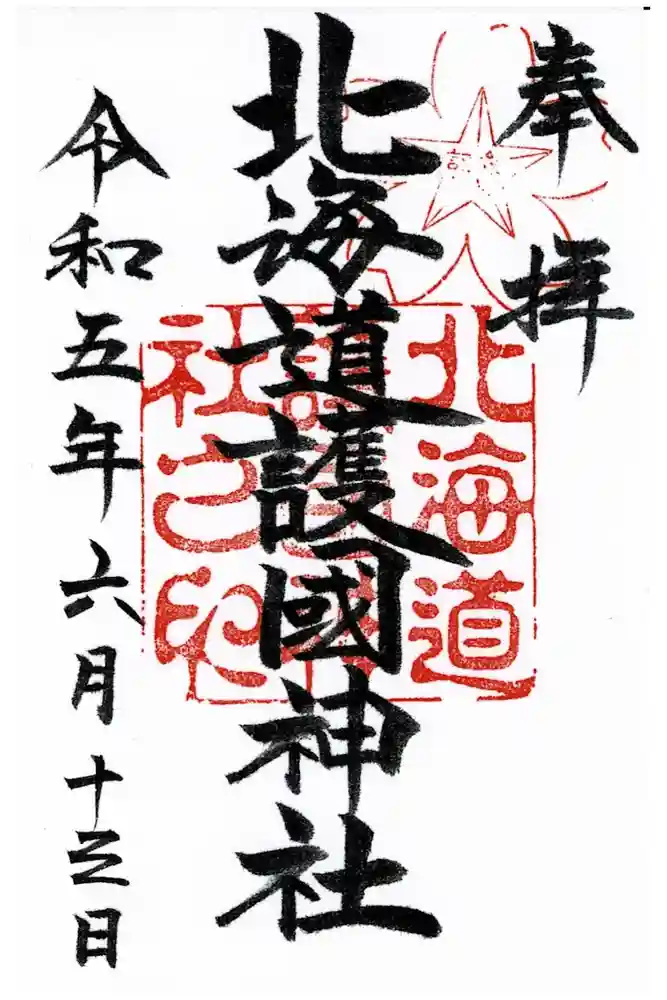 奉拝
北海道護國神社
令和五年六月十三日
北海道
護國神
社之印